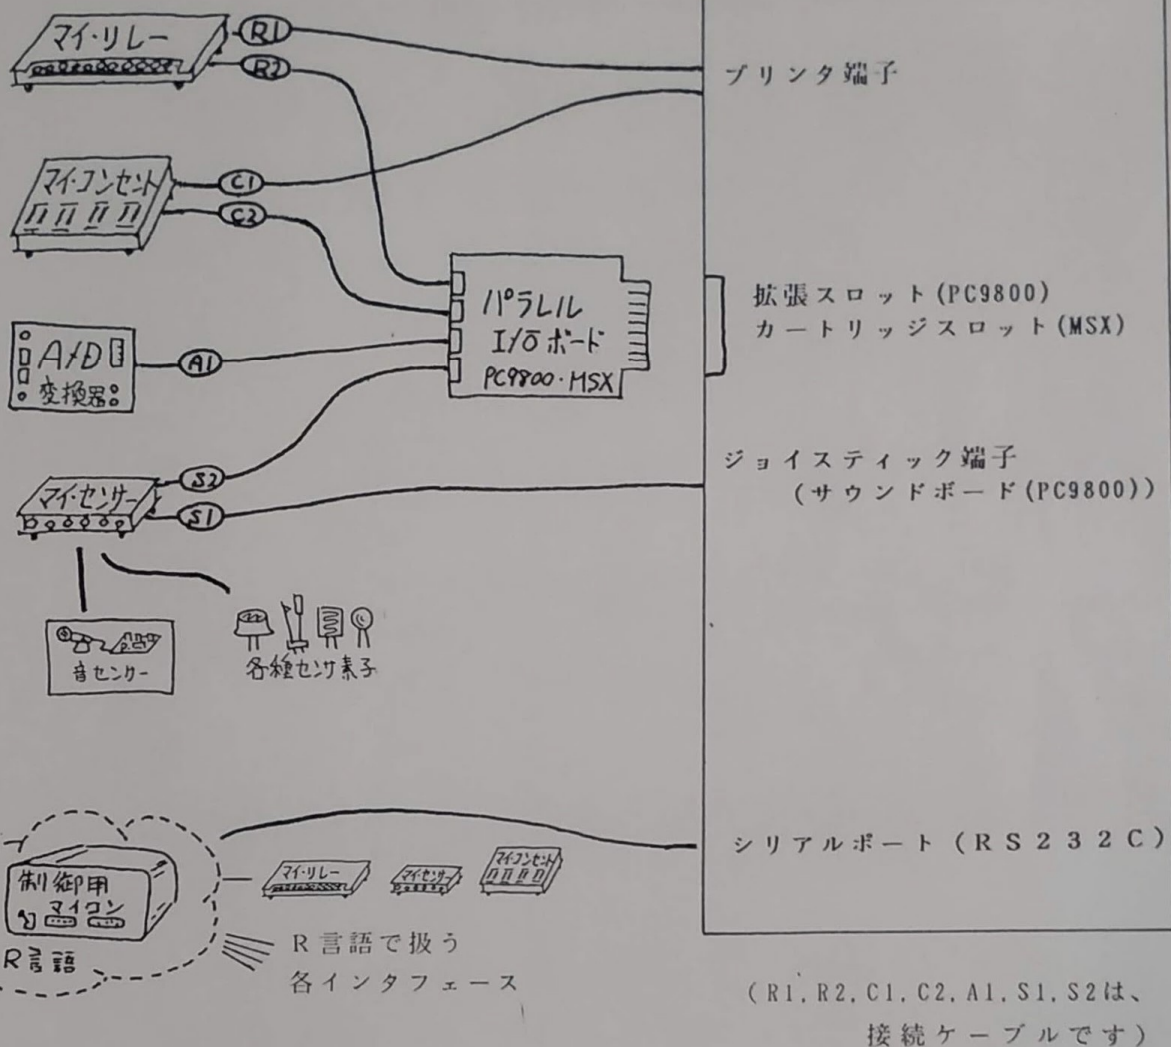 マイ・リレー
R1
R2
プリンタ端子
マイ・コンセント
C1
C2
パラレル
I/Oボード
PC9800・MSX
拡張スロット(PC9800)
カートリッジスロット(MSX)
A/D
変換器
A1
ジョイスティック端子
(サウンドボード(PC9800))
マイ・センサー
S2
S1
音センサー
各種センサ素子
シリアルポート(RS232C)
制御用
マイコン
R言語
マイ・リレー
マイ・センサー
マイ・コンセント
R言語で扱う
各インタフェース
(R1,R2,C1,C2,A1,S1,S2は、
接続ケーブルです)